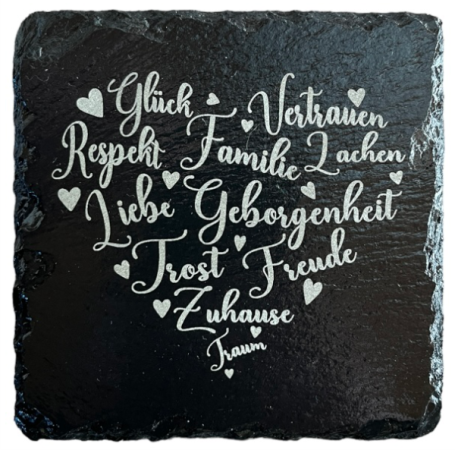 Glück Vertrauen
Respekt Familie Lachen
Liebe Geborgenheit
Trost Freude
Zuhause
Traum